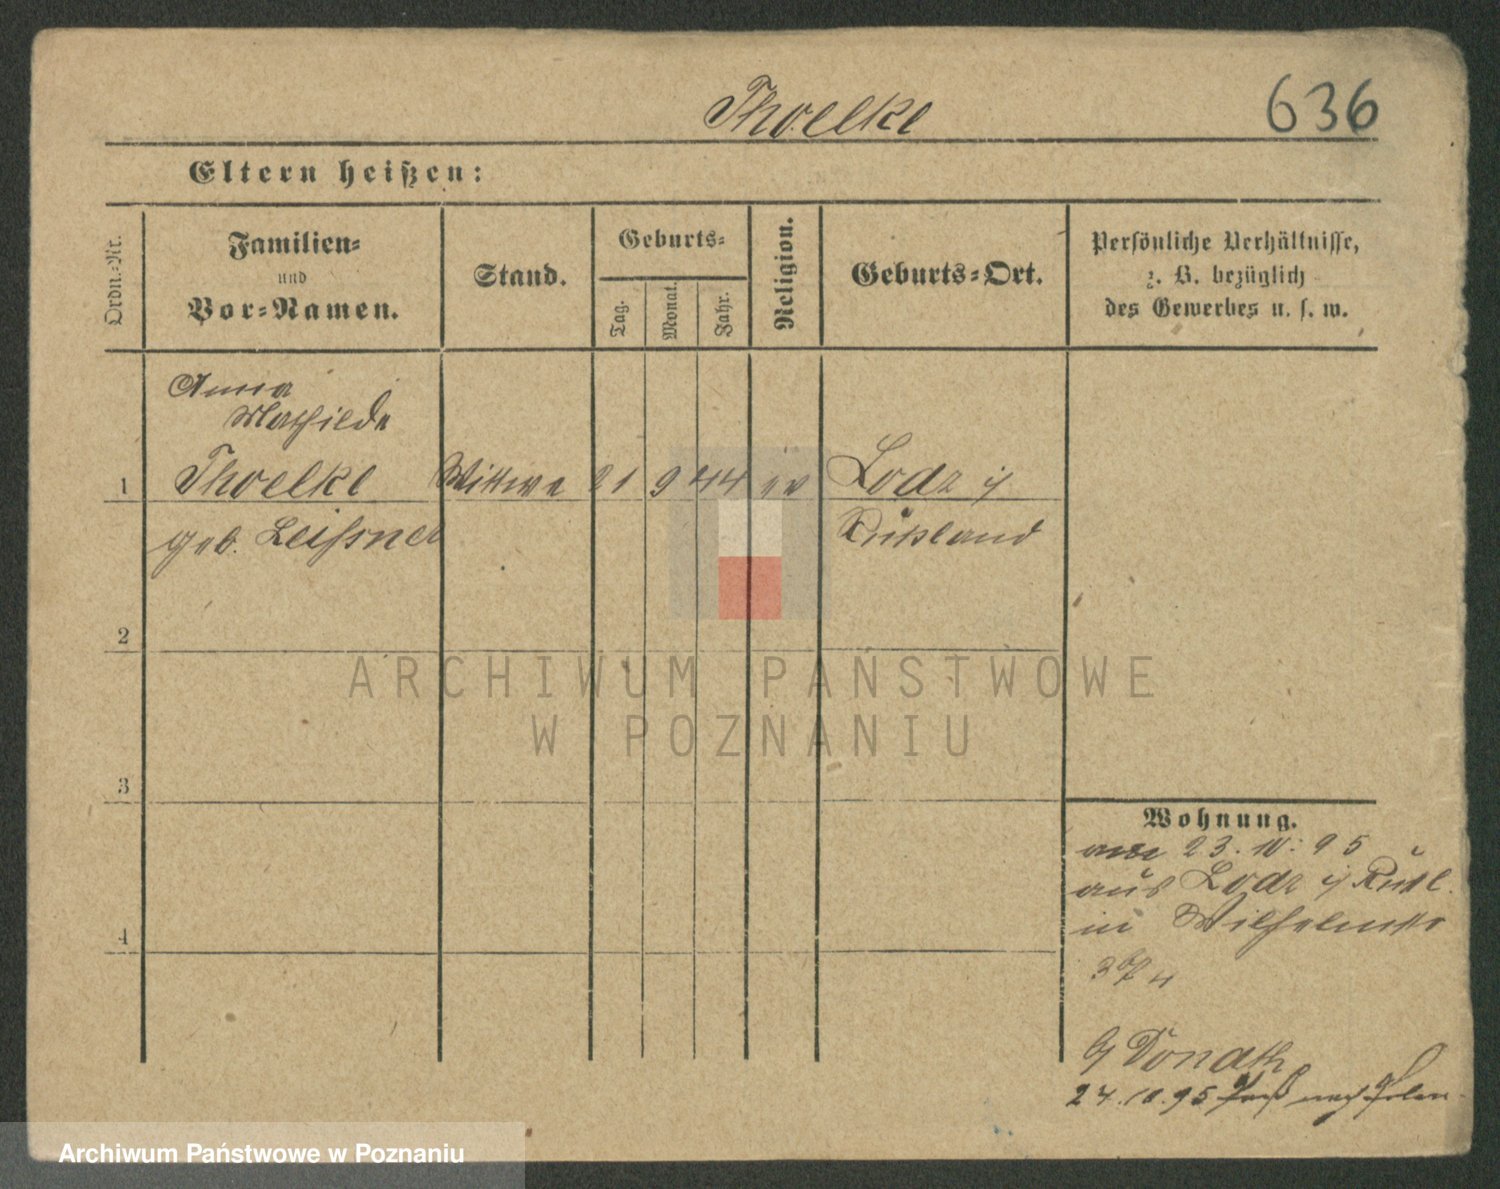 Thoelke
636
Eltern heißen:
Ordn.-Nr.
Familien-
und
Vor-Namen.
Stand.
Geburts-
Tag.
Monat.
Jahr.
Religion.
Geburts-Ort.
Persönliche Verhältnisse,
z. B. bezüglich
des Gewerbes u. s. w.
Anna
Mathilde
1 Thoelke Wittwe 21 9 44 ev Lodz i/
geb. Leissner Rußland
2
3
4
Wohnung.
23. 10. 95
aus Lodz i/ Rußl.
in Wilhelmstr
3
Donath
24.10.95 nach Polen
ARCHIWUM PAŃSTWOWE
W POZNANIU
Archiwum Państwowe w Poznaniu